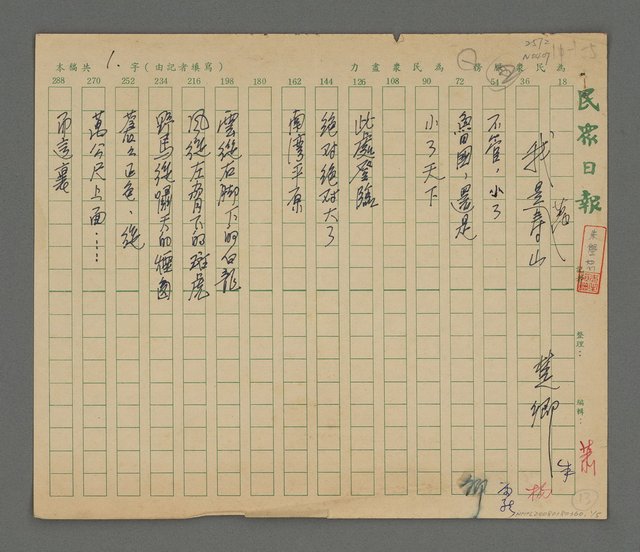 民眾日報
為民眾服務 為民眾盡力
字(由記者填寫)共 1. 本稿
18 36 54 72 90 108 126 144 162 180 198 216 234 252 270 288
整理：
編輯：
我是壽山
楚卿
不管，小了
魯國，還是
小了天下
此處登臨
絕對絕對大了
南灣平原
雲從右脚下的白龍
風從左脅下的斑虎
野馬從噶天的煙囪
蒼蒼正色，從
萬公尺上面……
而這裏